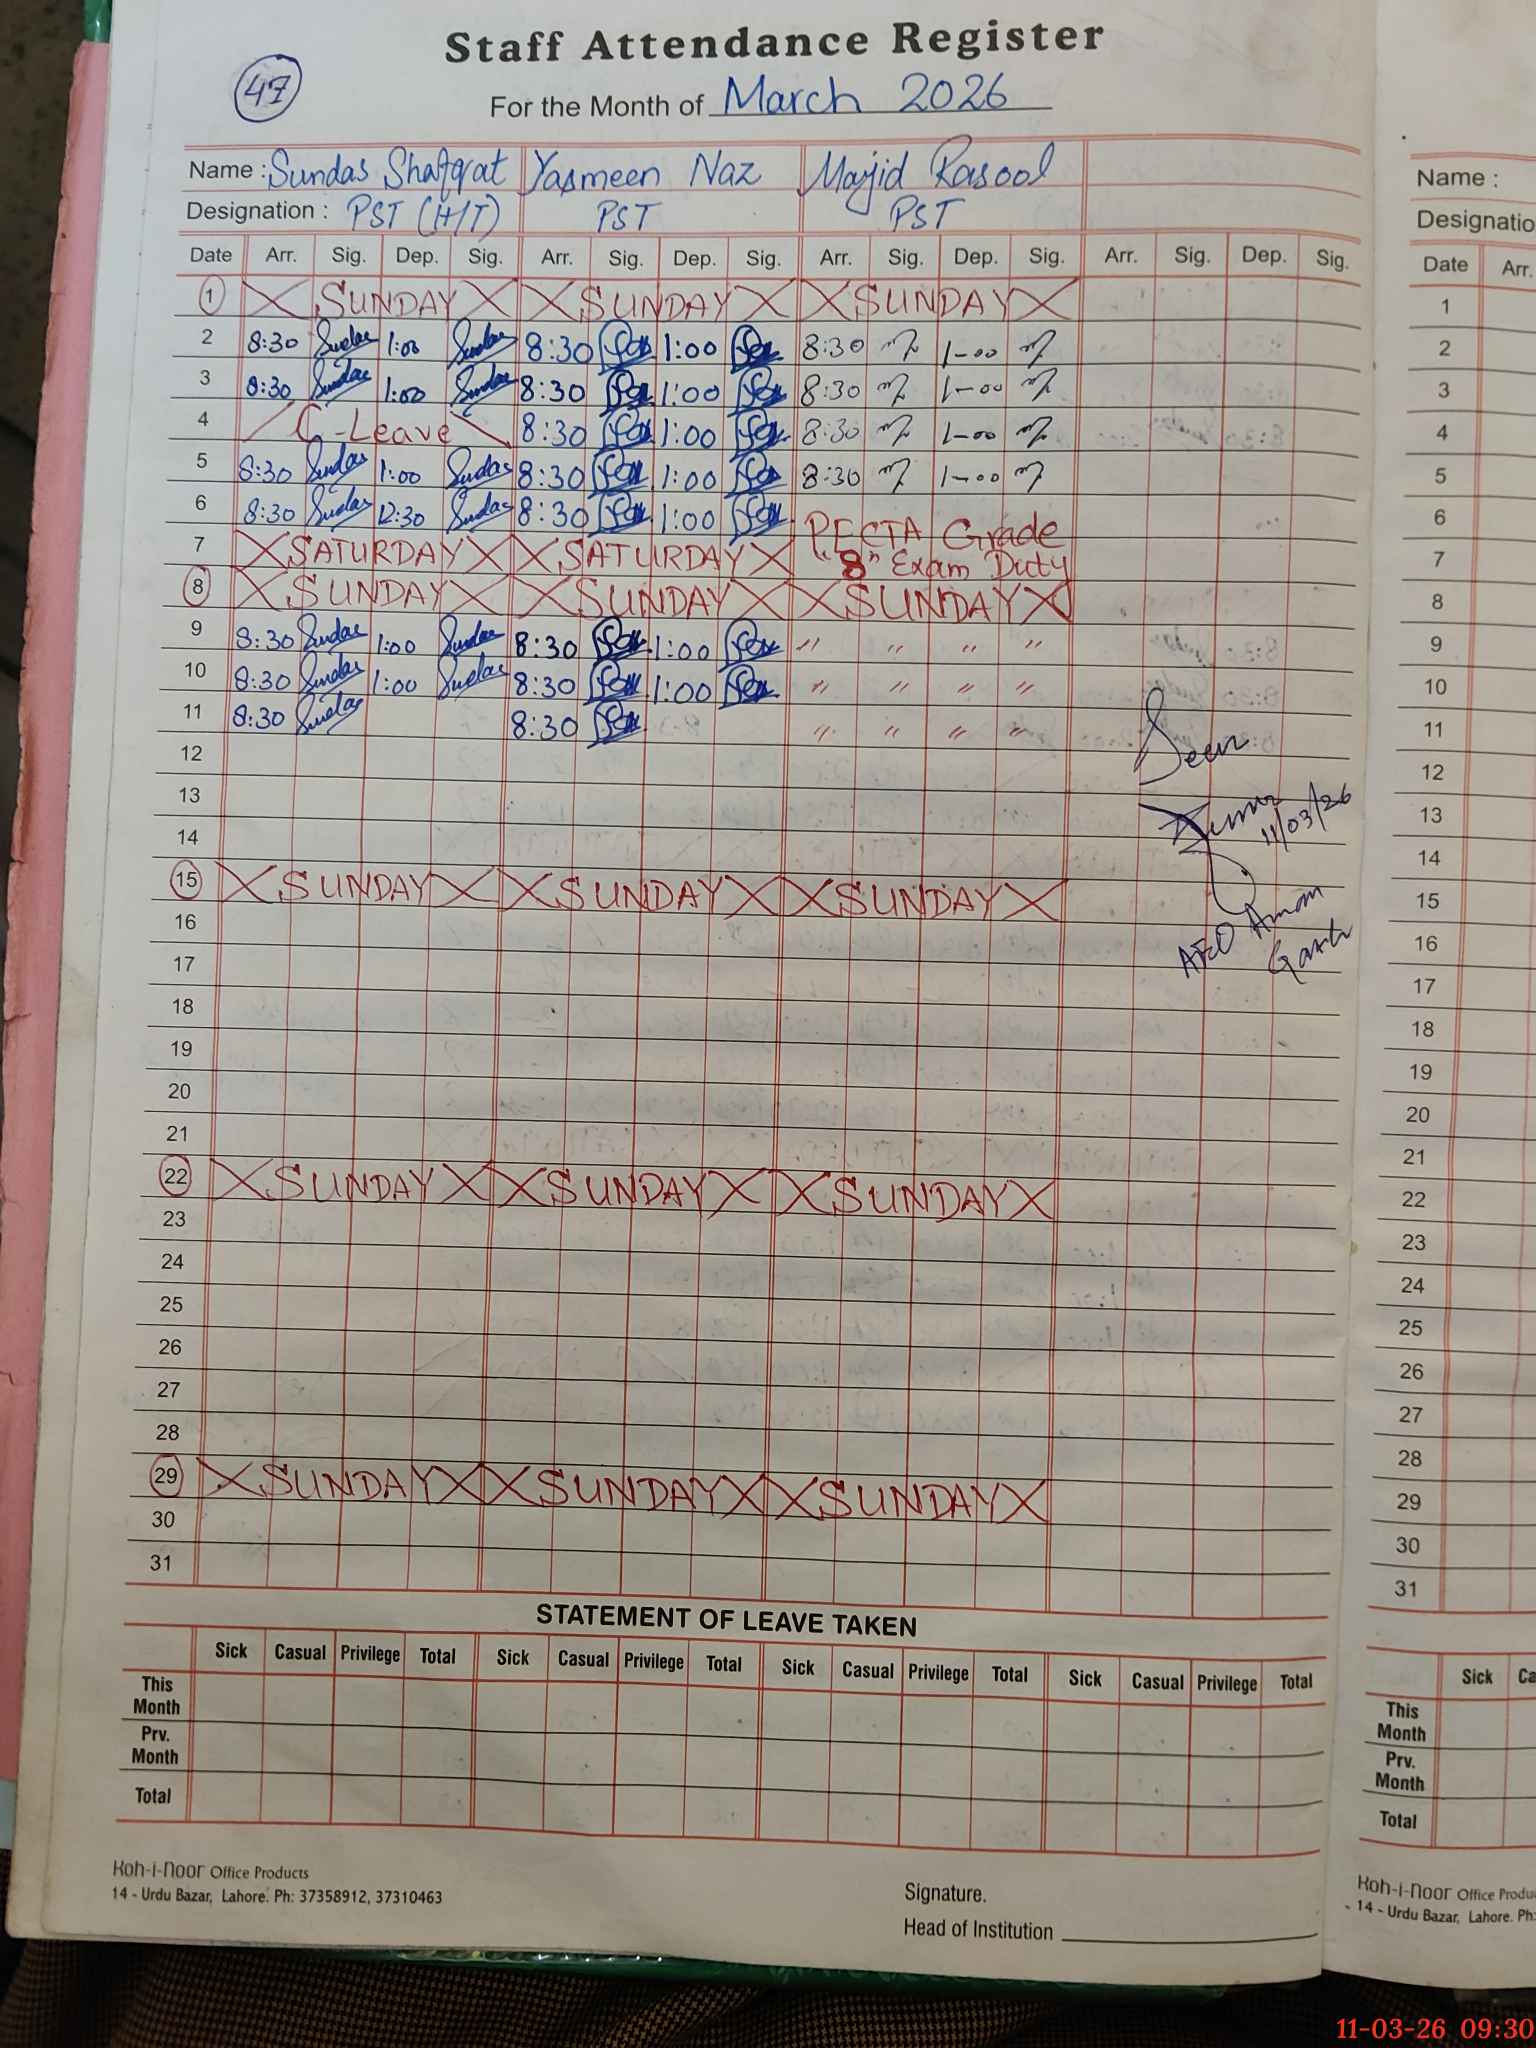 Staff Attendance Register
47
For the Month of March 2026
Name : Sundas Shafqat Yasmeen Naz Majid Rasool
Designation : PST (H/T) PST PST
Date Arr. Sig. Dep. Sig. Arr. Sig. Dep. Sig. Arr. Sig. Dep. Sig. Arr. Sig. Dep. Sig.
1 SUNDAY SUNDAY SUNDAY
2 8:30 Sundas 1:00 Sundas 8:30 1:00 8:30 1-00
3 8:30 Sundas 1:00 Sundas 8:30 1:00 8:30 1-00
4 C-Leave 8:30 1:00 8:30 1-00
5 8:30 Sundas 1:00 Sundas 8:30 1:00 8:30 1-00
6 8:30 Sundas 12:30 Sundas 8:30 1:00 PECTA Grade
7 SATURDAY SATURDAY "8" Exam Duty
8 SUNDAY SUNDAY SUNDAY
9 8:30 Sundas 1:00 Sundas 8:30 1:00 " " " "
10 8:30 Sundas 1:00 Sundas 8:30 1:00 " " " "
11 8:30 Sundas 8:30 " " " "
Seen
12
13
11/03/26
14
15 SUNDAY SUNDAY SUNDAY
AEO Aman
Garh
16
17
18
19
20
21
22 SUNDAY SUNDAY SUNDAY
23
24
25
26
27
28
29 SUNDAY SUNDAY SUNDAY
30
31
STATEMENT OF LEAVE TAKEN
Sick Casual Privilege Total Sick Casual Privilege Total Sick Casual Privilege Total Sick Casual Privilege Total
This
Month
Prv.
Month
Total
Koh-i-Noor Office Products
14 - Urdu Bazar, Lahore. Ph: 37358912, 37310463
Signature.
Head of Institution
Name :
Designatio
Date Arr.
1
2
3
4
5
6
7
8
9
10
11
12
13
14
15
16
17
18
19
20
21
22
23
24
25
26
27
28
29
30
31
Sick Ca
This
Month
Prv.
Month
Total
Koh-i-Noor Office Produ
14 - Urdu Bazar, Lahore. Ph:
11-03-26 09:30